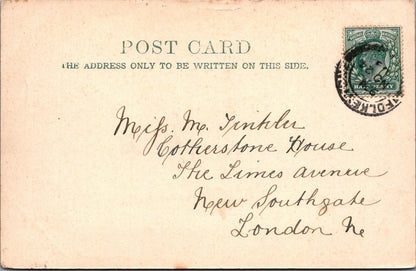 POST CARD
THE ADDRESS ONLY TO BE WRITTEN ON THIS SIDE.
HALF PENNY
FOLKE
Miss. M. Tinkler
Cotherstone House
The Limes avenue
New Southgate
London Ne